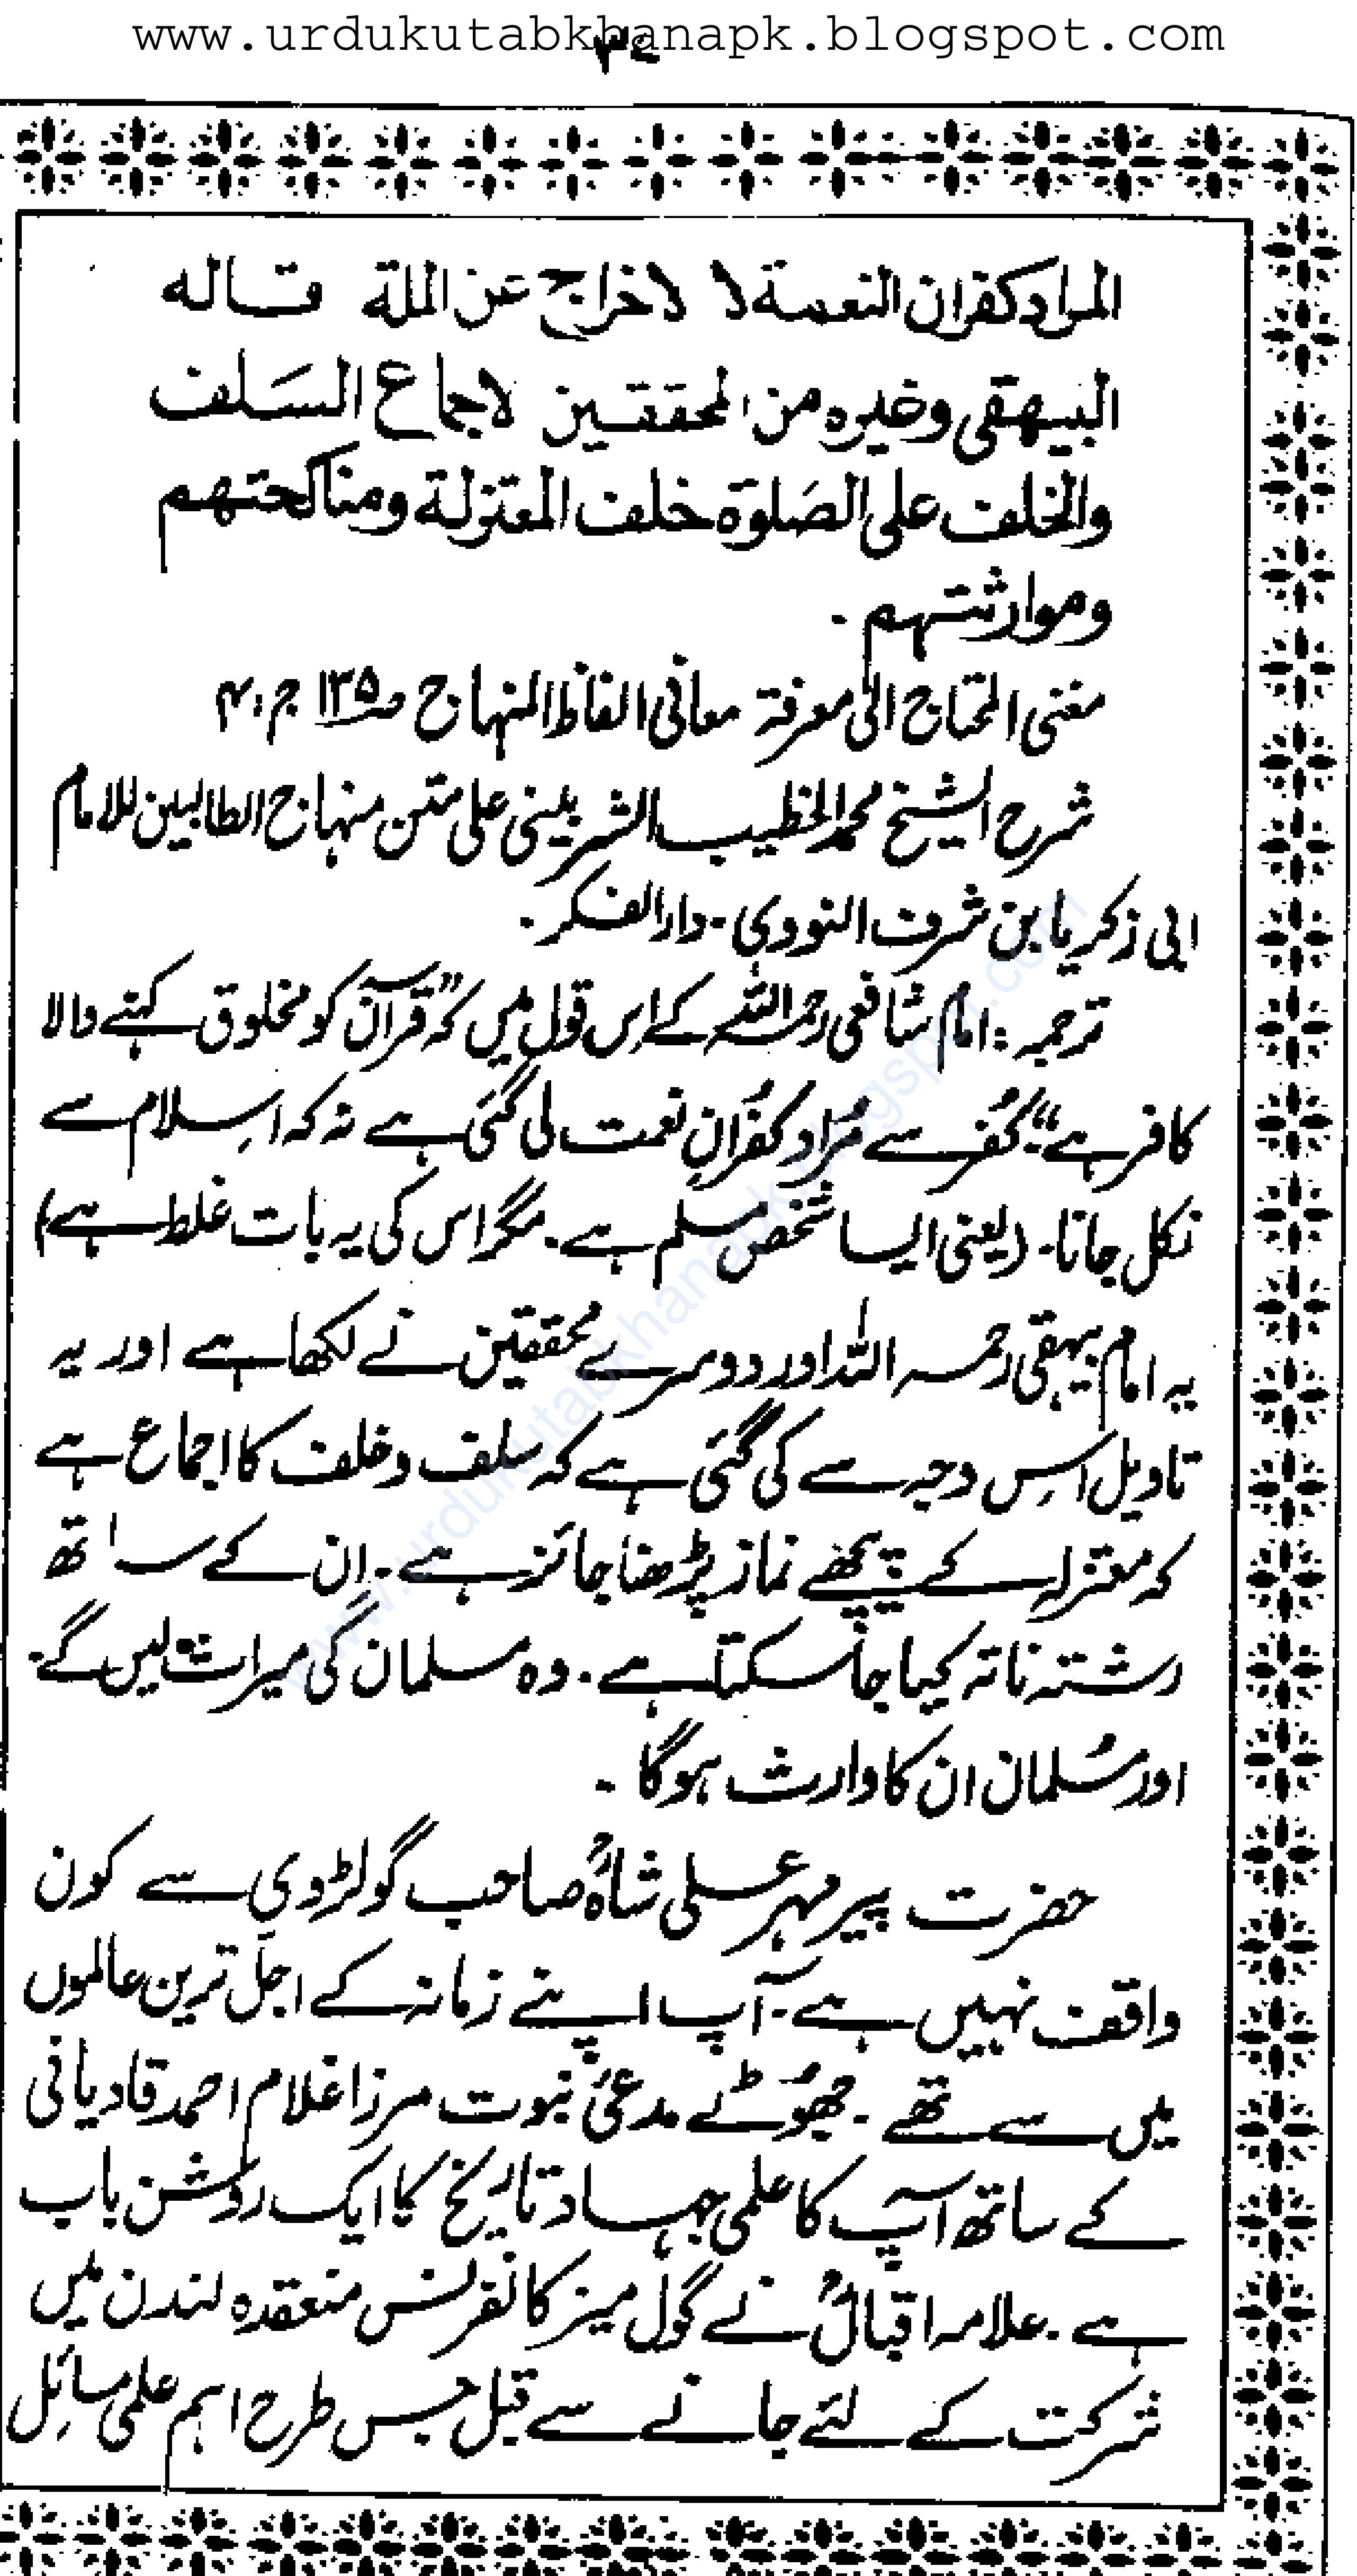 www.urdukutabkhanapk.blogspot.com
۳۷
المراد كفران النعمة لا لاخراج عن الملة قاله
البيهقى وغيره من المحققين لاجماع السَلف
والخلف على الصَلوة خلف المعتزلة ومناكحتهم
وموارثتهم ۔
مغنی المحتاج الی معرفۃ معانی الفاظ المنہاج صـ۱۳۵ ج:۴
شرح الشیخ محمد الخطیب الشربینی علی متن منہاج الطالبین للامام
ابی زکریا بن شرف النووی ۔ دار الفکر ۔
ترجمہ : امام شافعی رحمہ اللہ کے اس قول میں کہ ”قرآن کو مخلوق کہنے والا
کافر ہے“ ۔ کُفر سے مُراد کفُرانِ نعمت لی گئی ہے نہ کہ اسِلام سے
نکل جانا ۔ (یعنی ایسا شخص مسلم ہے ۔ مگر اس کی یہ بات غلط ہے)
یہ امام بیہقی رحمہ اللہ اور دوسرے محققین نے لکھا ہے اور یہ
تاویل اسِ وجہ سے کی گئی ہے کہ سلف وخلف کا اجماع ہے
کہ معتزلہ کے پیچھے نماز پڑھنا جائز ہے ۔ اِن کے ساتھ
رشتہ ناتہ کیا جا سکتا ہے ۔ وہ مسلمان کی میراث لیں گے ۔
اور مُسلمان ان کا وارث ہوگا ۔
حضرت پیر مہر علی شاہؒ صاحب گولڑوی سے کون
واقف نہیں ہے ۔ آپ اپنے زمانہ کے اجلّ ترین عالموں
میں سے تھے ۔ جھوُٹے مدعیٔ نبوت مرزا غلام احمد قادیانی
کے ساتھ آپ کا علمی جہاد تاریخ کا ایک روشن باب
ہے ۔ علامہ اقبالؒ نے گول میز کانفرنس منعقدہ لندن میں
شرکت کے لئے جانے سے قبل جس طرح اہم علمی مسائل
www.urdukutabkhanapk.blogspot.com